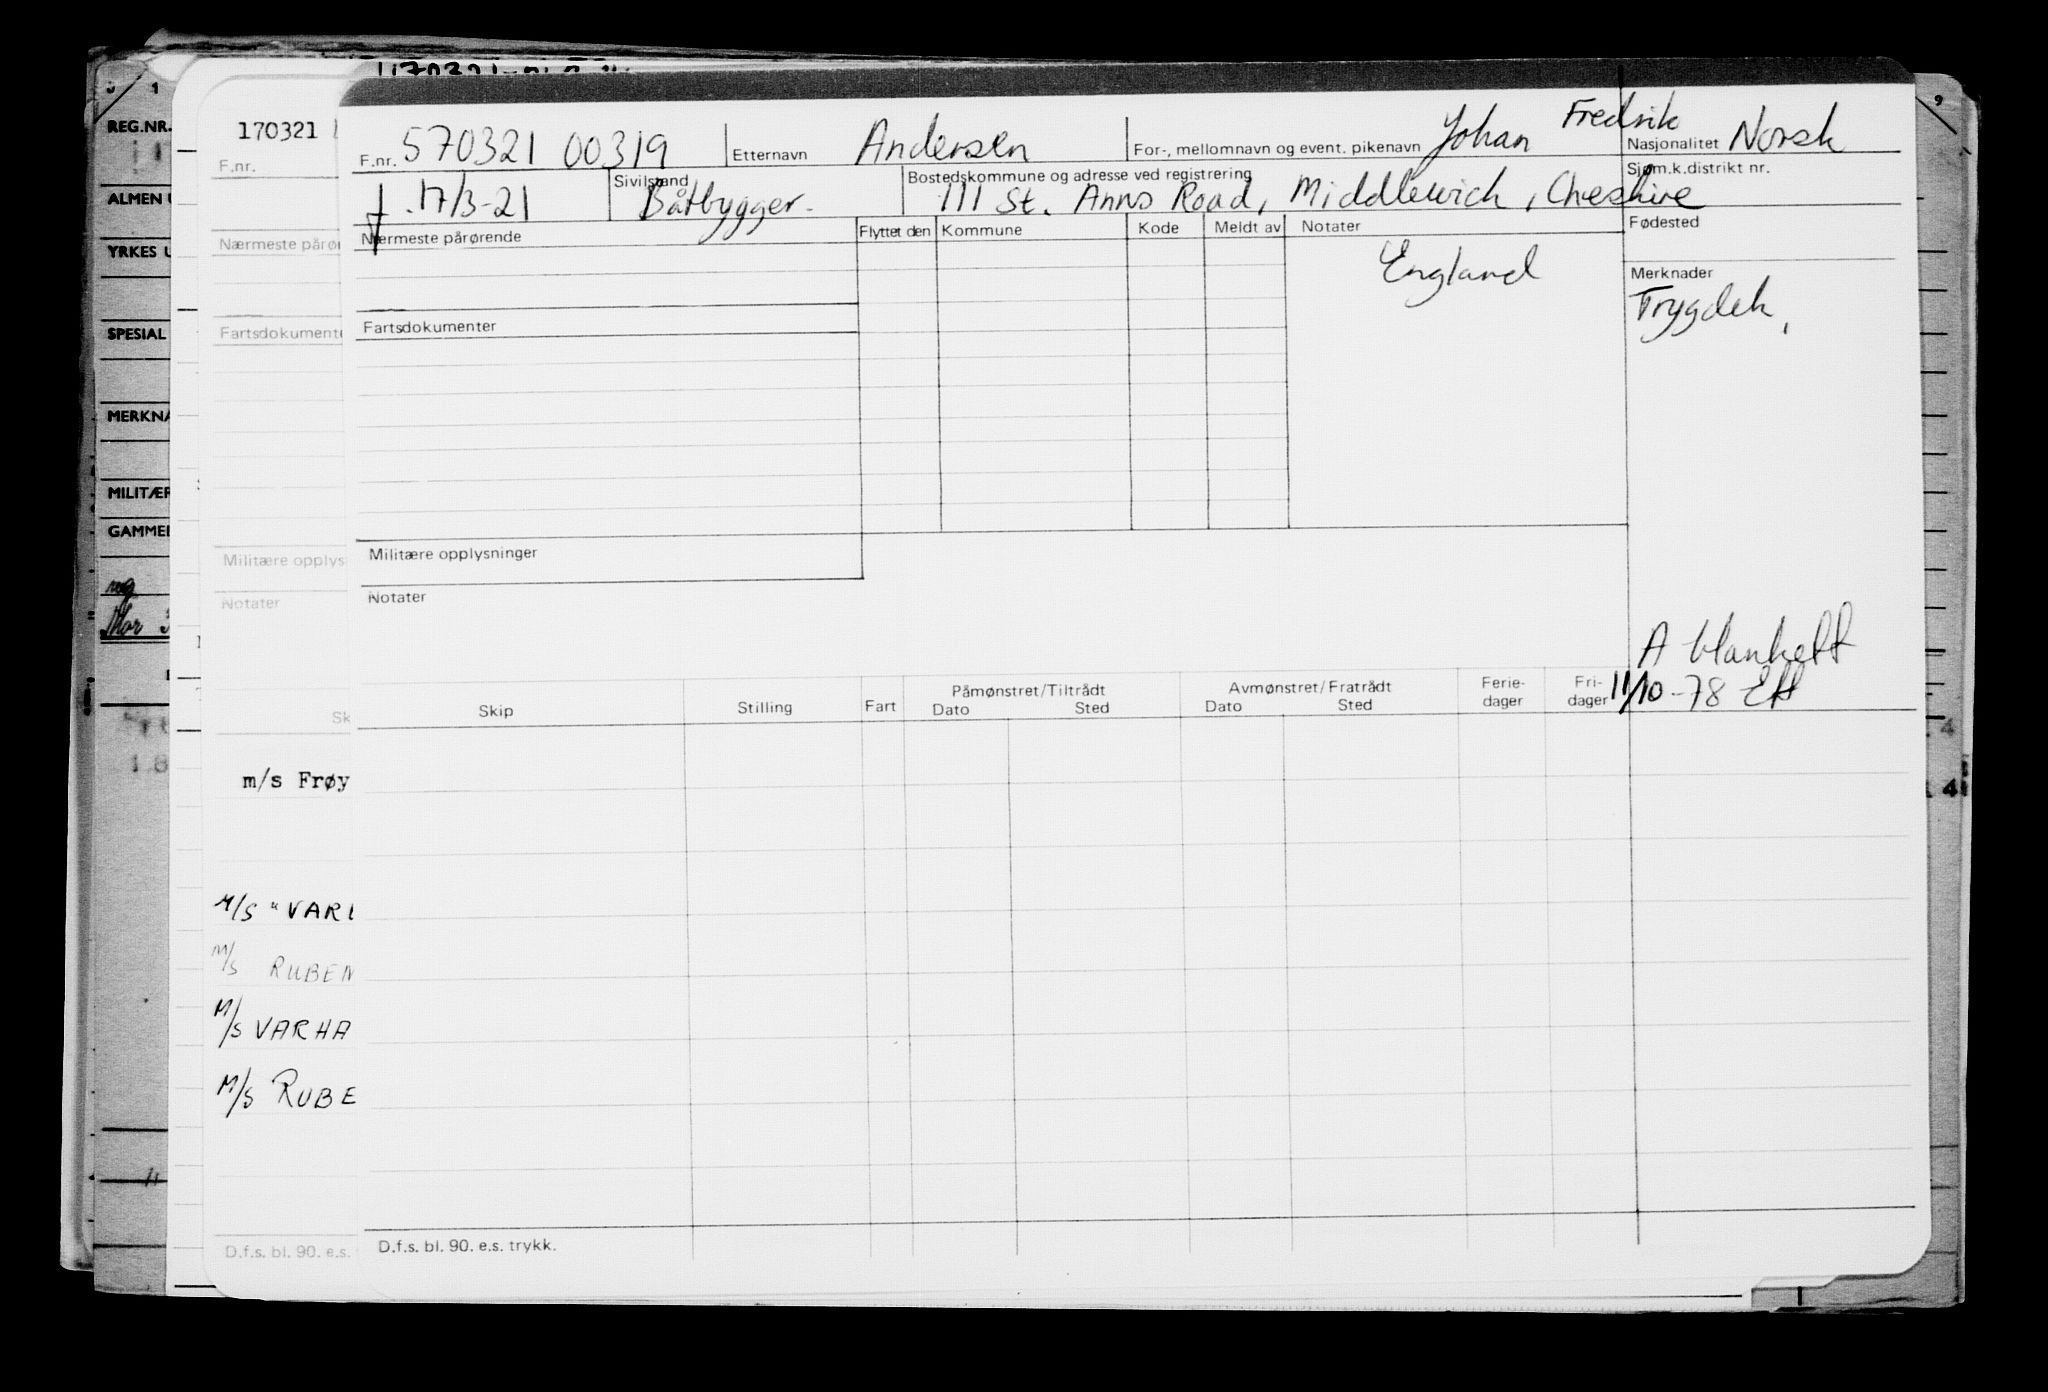 REG.NR.
ALMEN
YRKES
SPESIAL
MERKNA
MILITÆR
GAMMEL
Mor
170321
F.nr.
Nærmeste pårør
Fartsdokumente
Militære opplys
Notater
Sk
m/s Frøy
M/S "VARI
M/S RUBEN
M/S VARHA
M/S RUBE
D.f.s. bl. 90. e.s.
F.nr. 570321 00319 Etternavn Andersen For-, mellomnavn og event. pikenavn Johan Fredrik Nasjonalitet Norsk
f. 17/3-21 Sivilstand Båtbygger. Bostedskommune og adresse ved registrering 111 St. Anns Road, Middlewich, Cheshire Sjøm.k.distrikt nr.
Nærmeste pårørende Flyttet den Kommune Kode Meldt av Notater Fødested
England
Merknader
Trygdek,
Fartsdokumenter
Militære opplysninger
Notater
A blankett
11/10-78 EH
Skip Stilling Fart Påmønstret/Tiltrådt Avmønstret/Fratrådt Ferie- Fri-
Dato Sted Dato Sted dager dager
D.f.s. bl. 90. e.s. trykk.
9
4
4